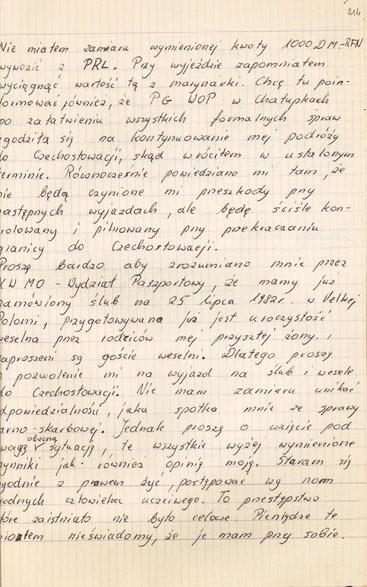 214
Nie miałem zamiaru wymienionej kwoty 1000 DM-RFN
wywozić z PRL. Przy wyjeździe zapomniałem
wyciągnąć wartość tą z marynarki. Chcę tu poin-
formować również, że PG WOP w Chałupkach
po załatwieniu wszystkich formalnych spraw
zgodziła się na kontynuowanie mej podróży
do Czechosłowacji, skąd wróciłem w ustalonym
terminie. Równocześnie powiedziano mi tam, że
nie będą czynione mi przeszkody przy
następnych wyjazdach, ale będę ściśle kon-
rolowany i pilnowany przy przekraczaniu
granicy do Czechosłowacji.
Proszę bardzo aby zrozumiano mnie przez
KW MO - Wydział Paszportowy, że mamy już
zamówiony ślub na 25 lipca 1982r. w Velkej
Polomi, przygotowywana już jest uroczystość
weselna przez rodziców mej przyszłej żony i
zaproszeni są goście weselni. Dlatego proszę
o pozwolenie mi na wyjazd na ślub i wesele
do Czechosłowacji. Nie mam zamiaru unikać
odpowiedzialności, jaka spotka mnie ze sprawy
karno-skarbowej. Jednak proszę o wzięcie pod
obecną
uwagę sytuację, te wszystkie wyżej wymienione
czynniki jak również opinię moją. Staram się
zgodnie z prawem żyć, postępować wg norm
godnych człowieka uczciwego. To przestępstwo
które zaistniało nie było celowe. Pieniądze te
miałem nieświadomy, że je mam przy sobie.